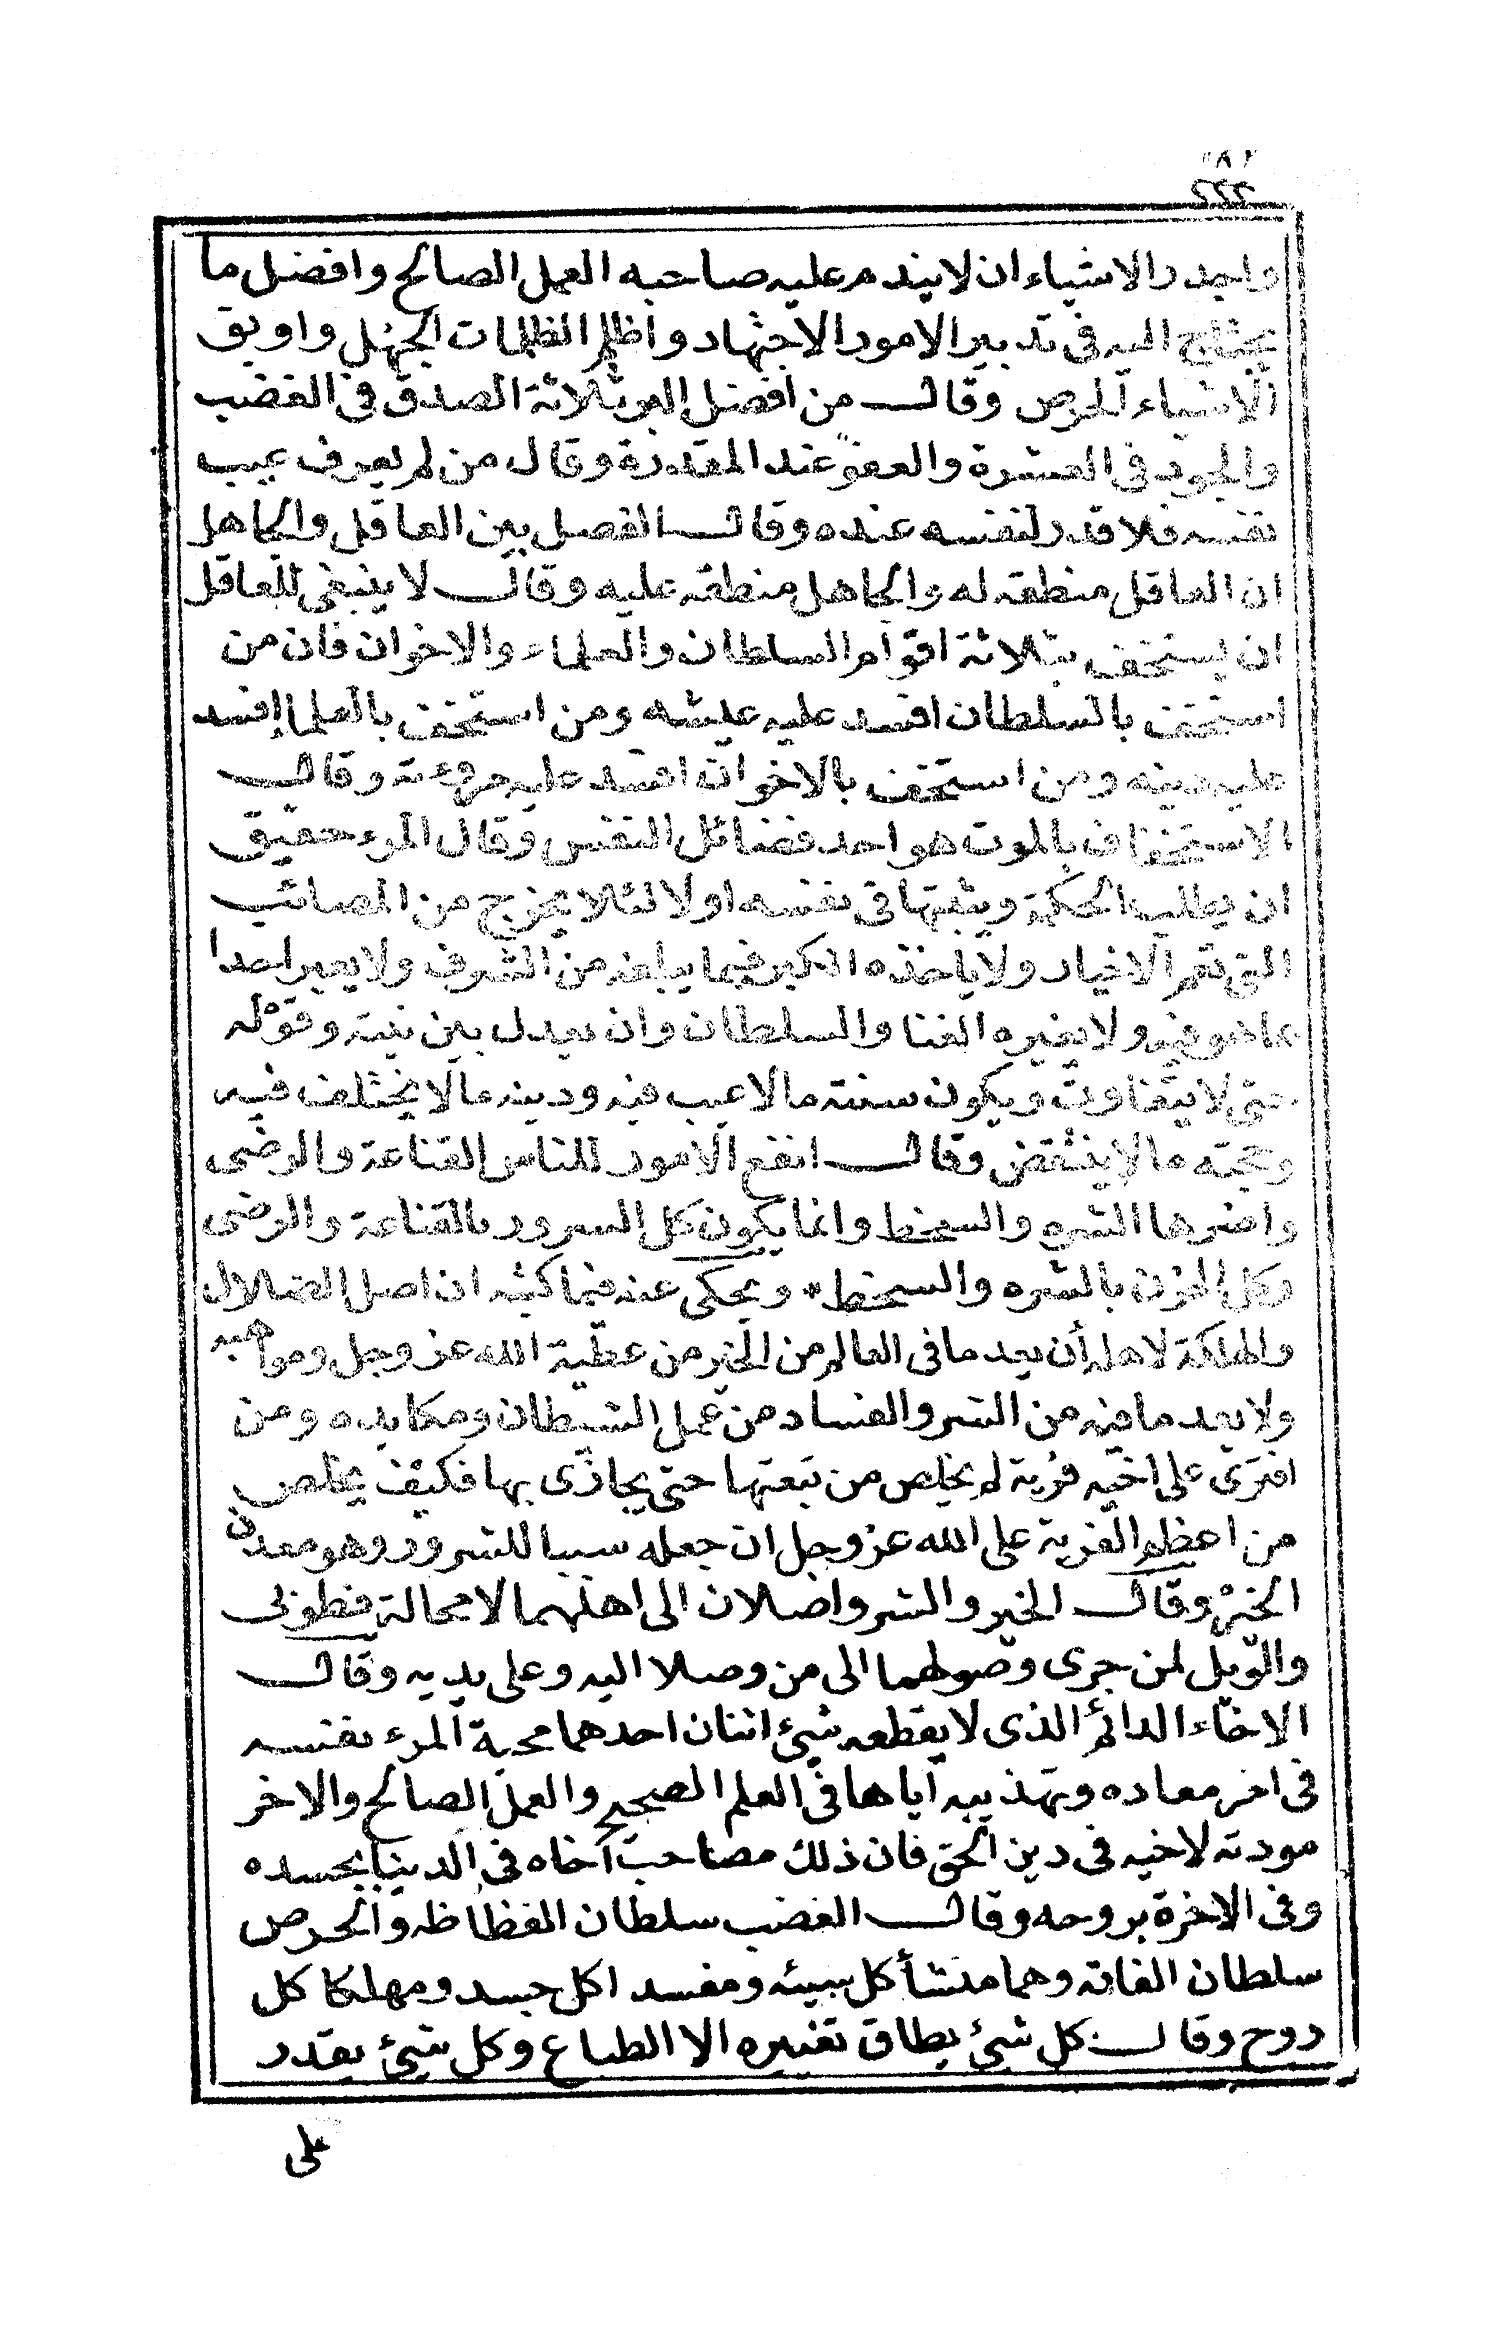 ٢٢٢
واجدر الاشياء ان لا يندم عليه صاحبه العمل الصالح وافضل ما
يحتاج اليه فى تدبير الامور الاجتهاد واظلم الظلمات الجهل واوبق
الاشياء الحرص وقال من افضل البر ثلاثة الصدق فى الغضب
والجود فى العسرة والعفو عند المقدرة وقال من لم يعرف عيب
نفسه فلا قدر لنفسه عنده وقال الفصل بين العاقل والجاهل
ان العاقل منطقه له والجاهل منطقه عليه وقال لا ينبغى للعاقل
ان يستخف بثلاثة اقوام السلطان والعلماء والاخوان فان من
استخف بالسلطان افسد عليه عيشه ومن استخف بالعلما افسد
عليه دينه ومن استخف بالاخوان افسد عليه مروءته وقال
الاستخفاف بالموت هو احد فضائل النفس وقال المرء حقيق
ان يطلب الحكمة ويثبتها فى نفسه اولا لئلا يجزع من المصائب
التى تعم الاخيار ولا ياخذه الكبر فيما يبلغه من الشرف ولا يعير احدا
بما هو فيه ولا يغيره الغنا والسلطان وان يعدل بين نيته وقوله
حتى لا يتفاوت ويكون سنته ما لا عيب فيه ودينه ما لا يختلف فيه
وحجته ما لا ينتقض وقال انفع الامور للناس القناعة والرضى
واضرها الشره والسخط وانما يكون كل السرور بالقناعة والرضى
وكل الحزن بالشره والسخط * ويحكى عنه فيما كتبه ان اصل الضلال
والهلكة لاهله أن يعد ما فى العالم من الخير من عطية الله عز وجل ومواهبه
ولا يعد ما فيه من الشر والفساد من عمل الشيطان ومكايده ومن
افترى على اخيه فرية لم يخلص من تبعتها حتى يجازى بها فكيف يخلص
من اعظم الفرية على الله عز وجل ان جعله سببا للشرور وهو معدن
الخير وقال الخير والشر واصلان الى اهلهما لا محالة فطوبى
والويل لمن جرى وصولهما الى من وصلا اليه وعلى يديه وقال
الاخاء الدائم الذى لا يقطعه شئ اثنان احدهما محبة المرء نفسه
فى اخر معاده وتهذيبه اياها فى العلم الصحيح والعمل الصالح والاخر
مودته لاخيه فى دين الحق فان ذلك مصاحب اخاه فى الدنيا بجسده
وفى الاخرة بروحه وقال الغضب سلطان الفظاظه والحرص
سلطان الفاقه وهما منشأ كل سيئه ومفسدا كل جسد ومهلكا كل
روح وقال كل شئ يطاق تغييره الا الطباع وكل شئ يقدر
على